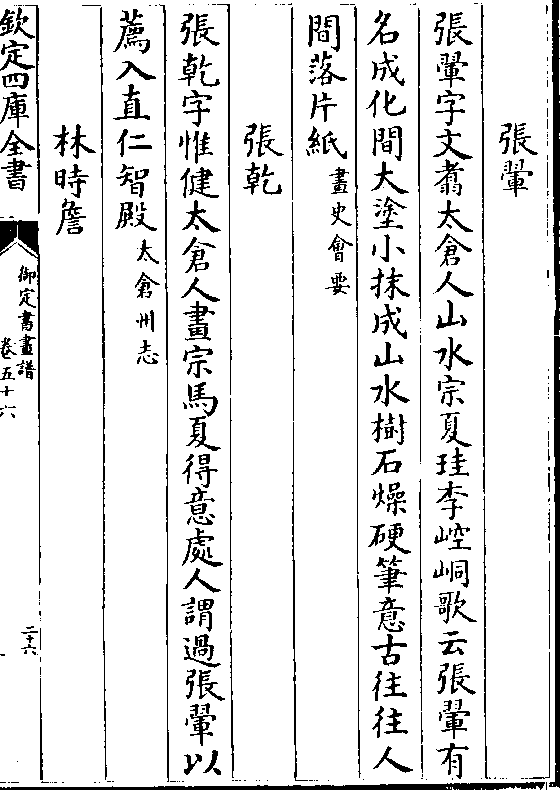 張翬
張翬字文翥太倉人山水宗夏珪李崆峒歌云張翬有
名成化間大塗小抹成山水樹石燥硬筆意古往往人
間落片紙畫史會要
張乾
張乾字惟健太倉人畫宗馬夏得意處人謂過張翬以
薦入直仁智殿太倉州志
林時詹
欽定四庫全書
御定書畫譜
卷五十六
二十六